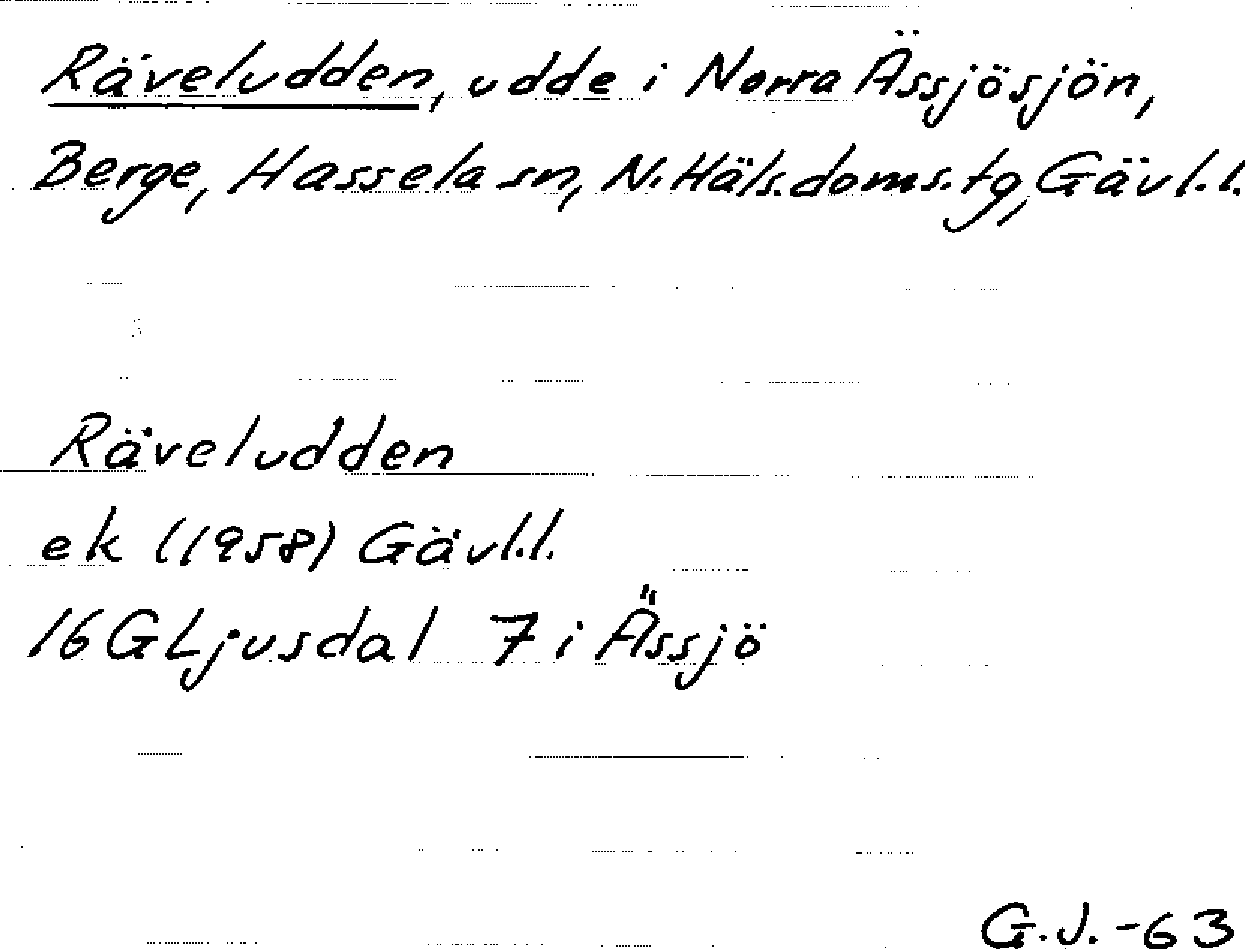 Räveludden, udde i Norra Ässjösjön,
Berge, Hassela sn, N. Häls. doms. tg, Gävl. l.
Räveludden
ek (1958) Gävl. l.
16G Ljusdal 7 i Ässjö
G.J. -63